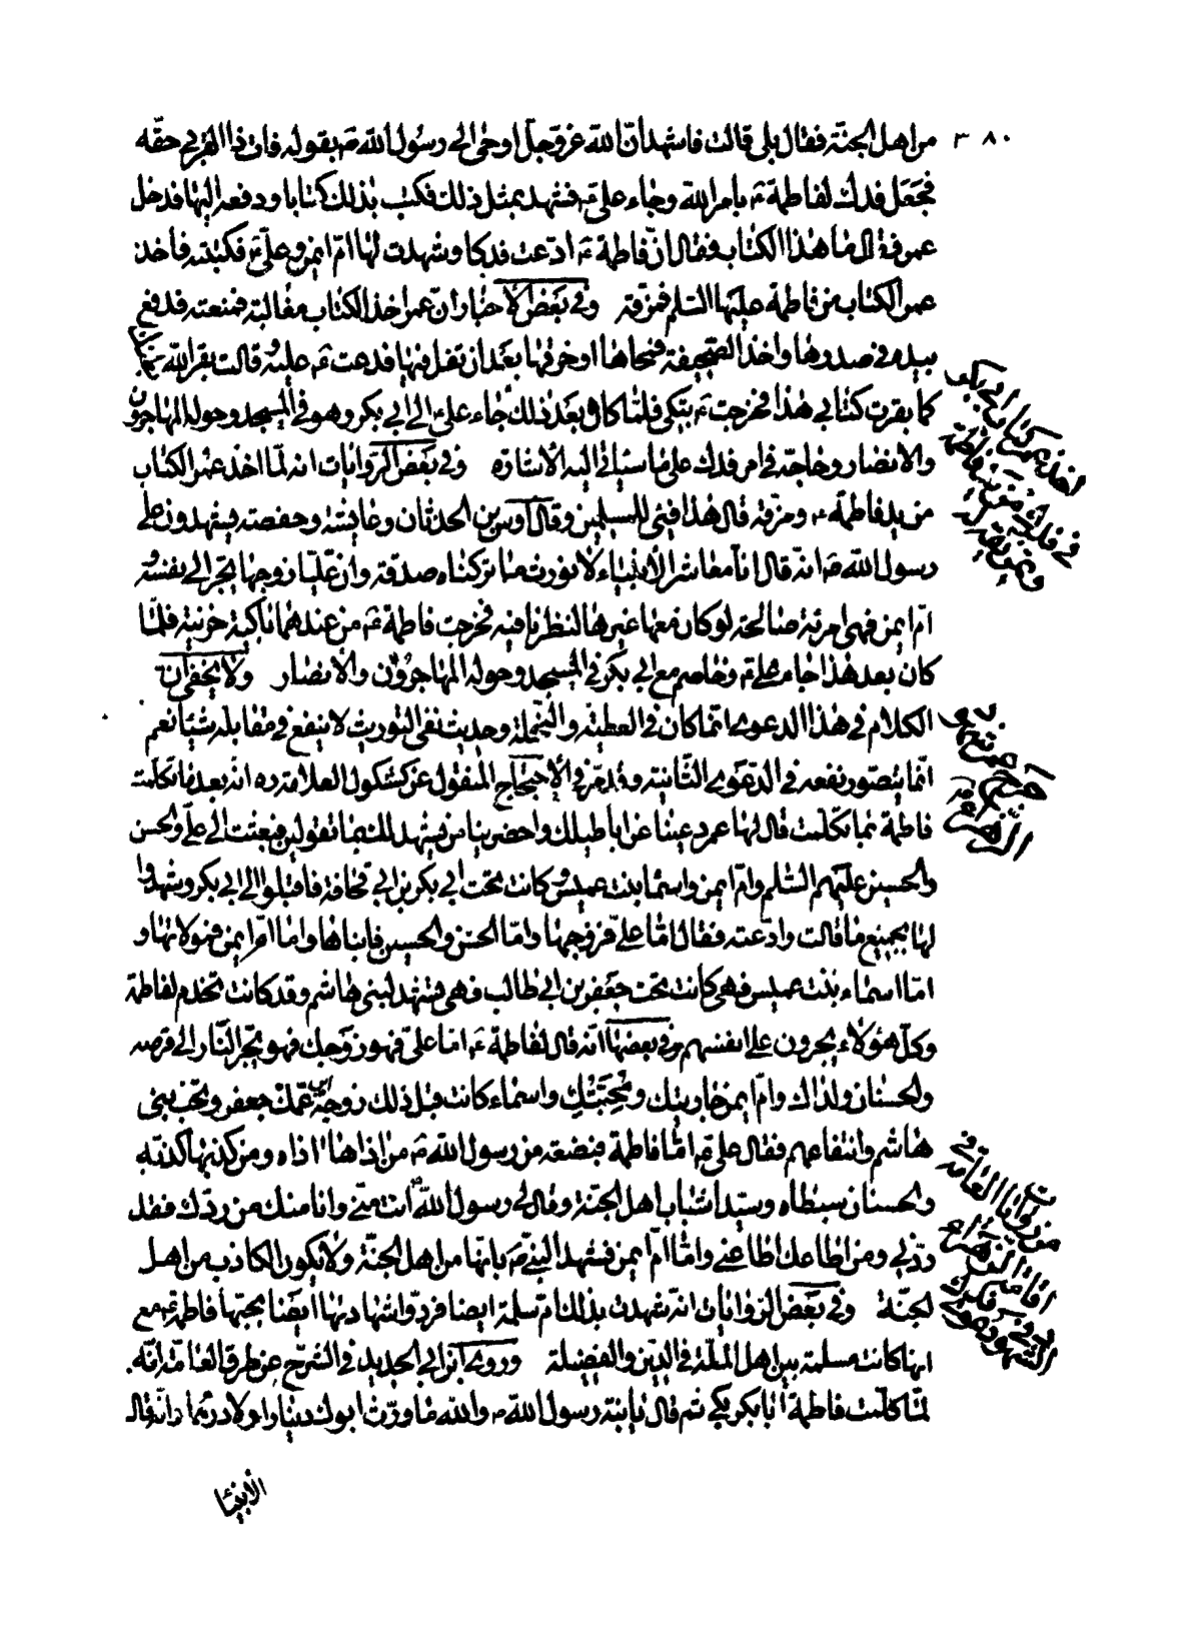 ٣٨٠
من اهل الجنّة فقال بلى قالت فاشهد انّ اللّه عزّ وجلّ اوحى الى رسول اللّه ص بقوله فات ذا القربى حقّه
فجعل فدك لفاطمة ع بامر اللّه وجاء علىّ ع فشهد بمثل ذلك فكتب بذلك كتابا ودفعه اليها فدخل
عمر فقال ما هذا الكتاب فقال انّ فاطمة ع ادّعت فدكا وشهدت لها امّ ايمن وعلىّ ع فكتبته فاخذ
عمر الكتاب من فاطمة عليها السّلم فمزّقه وفى بعض الاخبار انّ عمر اخذ الكتاب مغالبة فمنعته فدفع
بيده فى صدرها واخذ الصّحيفة فمحاها او خرقها بعد ان تفل فيها فدعت ع عليه وقالت بقر اللّه بطنك
كما بقرت كتابى هذا فخرجت ع تبكى فلمّا كان بعد ذلك جاء علىّ ع الى ابى بكر وهو فى المسجد وحوله المهاجرون
والانصار وحاجّه فى امر فدك على ما سياتى اليه الاشارة وفى بعض الرّوايات انه لمّا اخذ عمر الكتاب
من يد فاطمة ع ومزّقه قال هذا فيئ للمسلمين وقال اوس بن الحدثان وعايشة وحفصة يشهدون على
رسول اللّه ص انّه قال انّا معاشر الأنبياء لا نورث ما تركناه صدقة وان عليّا زوجها يجرّ الى نفسه و
امّ ايمن فهى امرئة صالحة لو كان معها غيرها لنظرنا فيه فخرجت فاطمة ع من عندهما باكية حزينة فلمّا
كان بعد هذا جاء على ع وخاصم مع ابى بكر فى المسجد وحوله المهاجرون والانصار ولا يخفى ان
الكلام فى هذا الدعوى انّما كان فى العطية والنّحلة وحديث نفى التوريث لا ينفع فى مقابله شيئا نعم
انّما يتصوّر نفعه فى الدّعوى الثّانية وقد مرّ فى الاحتجاج المنقول عن كشكول العلامة ره انّه بعد ما تكلّمت
فاطمة بما تكلّمت قال لها عمر دعينا عن اباطيلك واحضرينا من يشهد لك بما تقولين فبعثت الى علىّ والحسن
والحسين عليهم السّلم وامّ ايمن واسماء بنت عميس وكانت تحت ابى بكر بن ابى قحافة فاقبلوا الى ابى بكر وشهدوا
لها بجميع ما قالت وادّعته فقال امّا علىّ فزوجها وامّا الحسن والحسين فابناها وامّا امّ ايمن فمولاتها و
امّا اسماء بنت عميس فهى كانت تحت جعفر بن ابى طالب فهى تشهد لبنى هاشم وقد كانت تخدم لفاطمة
وكلّ هؤلاء يجرون على انفسهم وفى بعضها انّه قال لفاطمة ع امّا علىّ فهو زوجك فهو يجرّ النّار الى قرصه
والحسنان ولداك وامّ ايمن جاريتك ومحبّتك واسماء كانت قبل ذلك زوجة ابن عمّك جعفر وتحب بنى
هاشم وانتفاعهم فقال علىّ ع امّا فاطمة فبضعة من رسول اللّه ص من اذاها اذاه ومن كذبها كذّبه
والحسنان سبطاه وسيّدا شباب اهل الجنّة وقال لى رسول اللّه ص انت منّى وانا منك من ردّك فقد
ردّنى ومن اطاعك اطاعنى وامّا امّ ايمن فشهد النّبىّ ص بانّها من اهل الجنّة ولا يكون الكاذب من اهل
الجنّة وفى بعض الروايات انّه شهدت بذلك امّ سلمة ايضا فردّوا شهادتها ايضا بحبّها فاطمة ع مع
انها كانت مسلمة بين اهل الملّة فى الدّين والفضيلة وروى ابن ابى الحديد فى الشرح عن طرق العامّة انّه
لمّا كلّمت فاطمة ابا بكر بكى ثم قال يا بنة رسول اللّه ص واللّه ما ورّث ابوك دينارا ولا درهما وانّه قال
الأنبياء
اخذ عمر كتاب ابى بكر
فى فدك من يد فاطمة
من روايات العامة فى
اقامة الزهراء
الشهود فى فدك